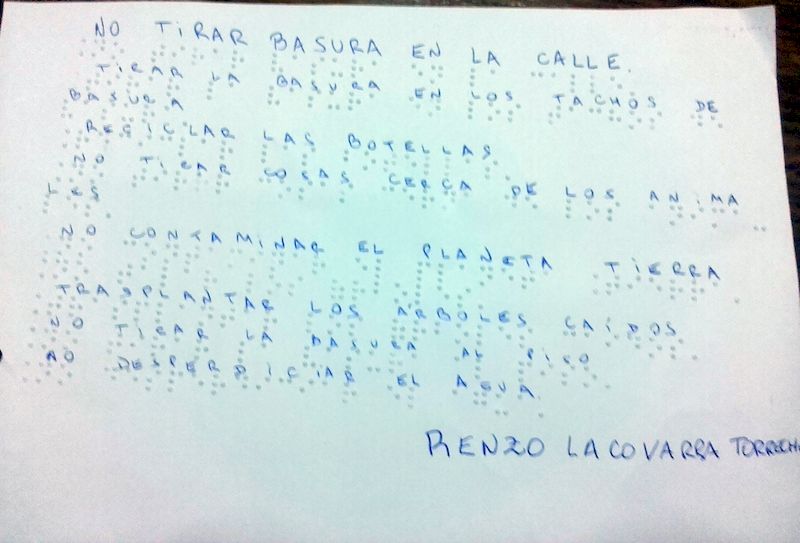 NO TIRAR BASURA EN LA CALLE.
TIRAR LA BASURA EN LOS TACHOS DE
BASURA
RECICLAR LAS BOTELLAS
NO TIRAR COSAS CERCA DE LOS ANIMA
LES
NO CONTAMINAR EL PLANETA TIERRA
TRASPLANTAR LOS ARBOLES CAÍDOS
NO TIRAR LA BASURA AL PISO
NO DESPERDICIAR EL AGUA.
RENZO LACOVARRA